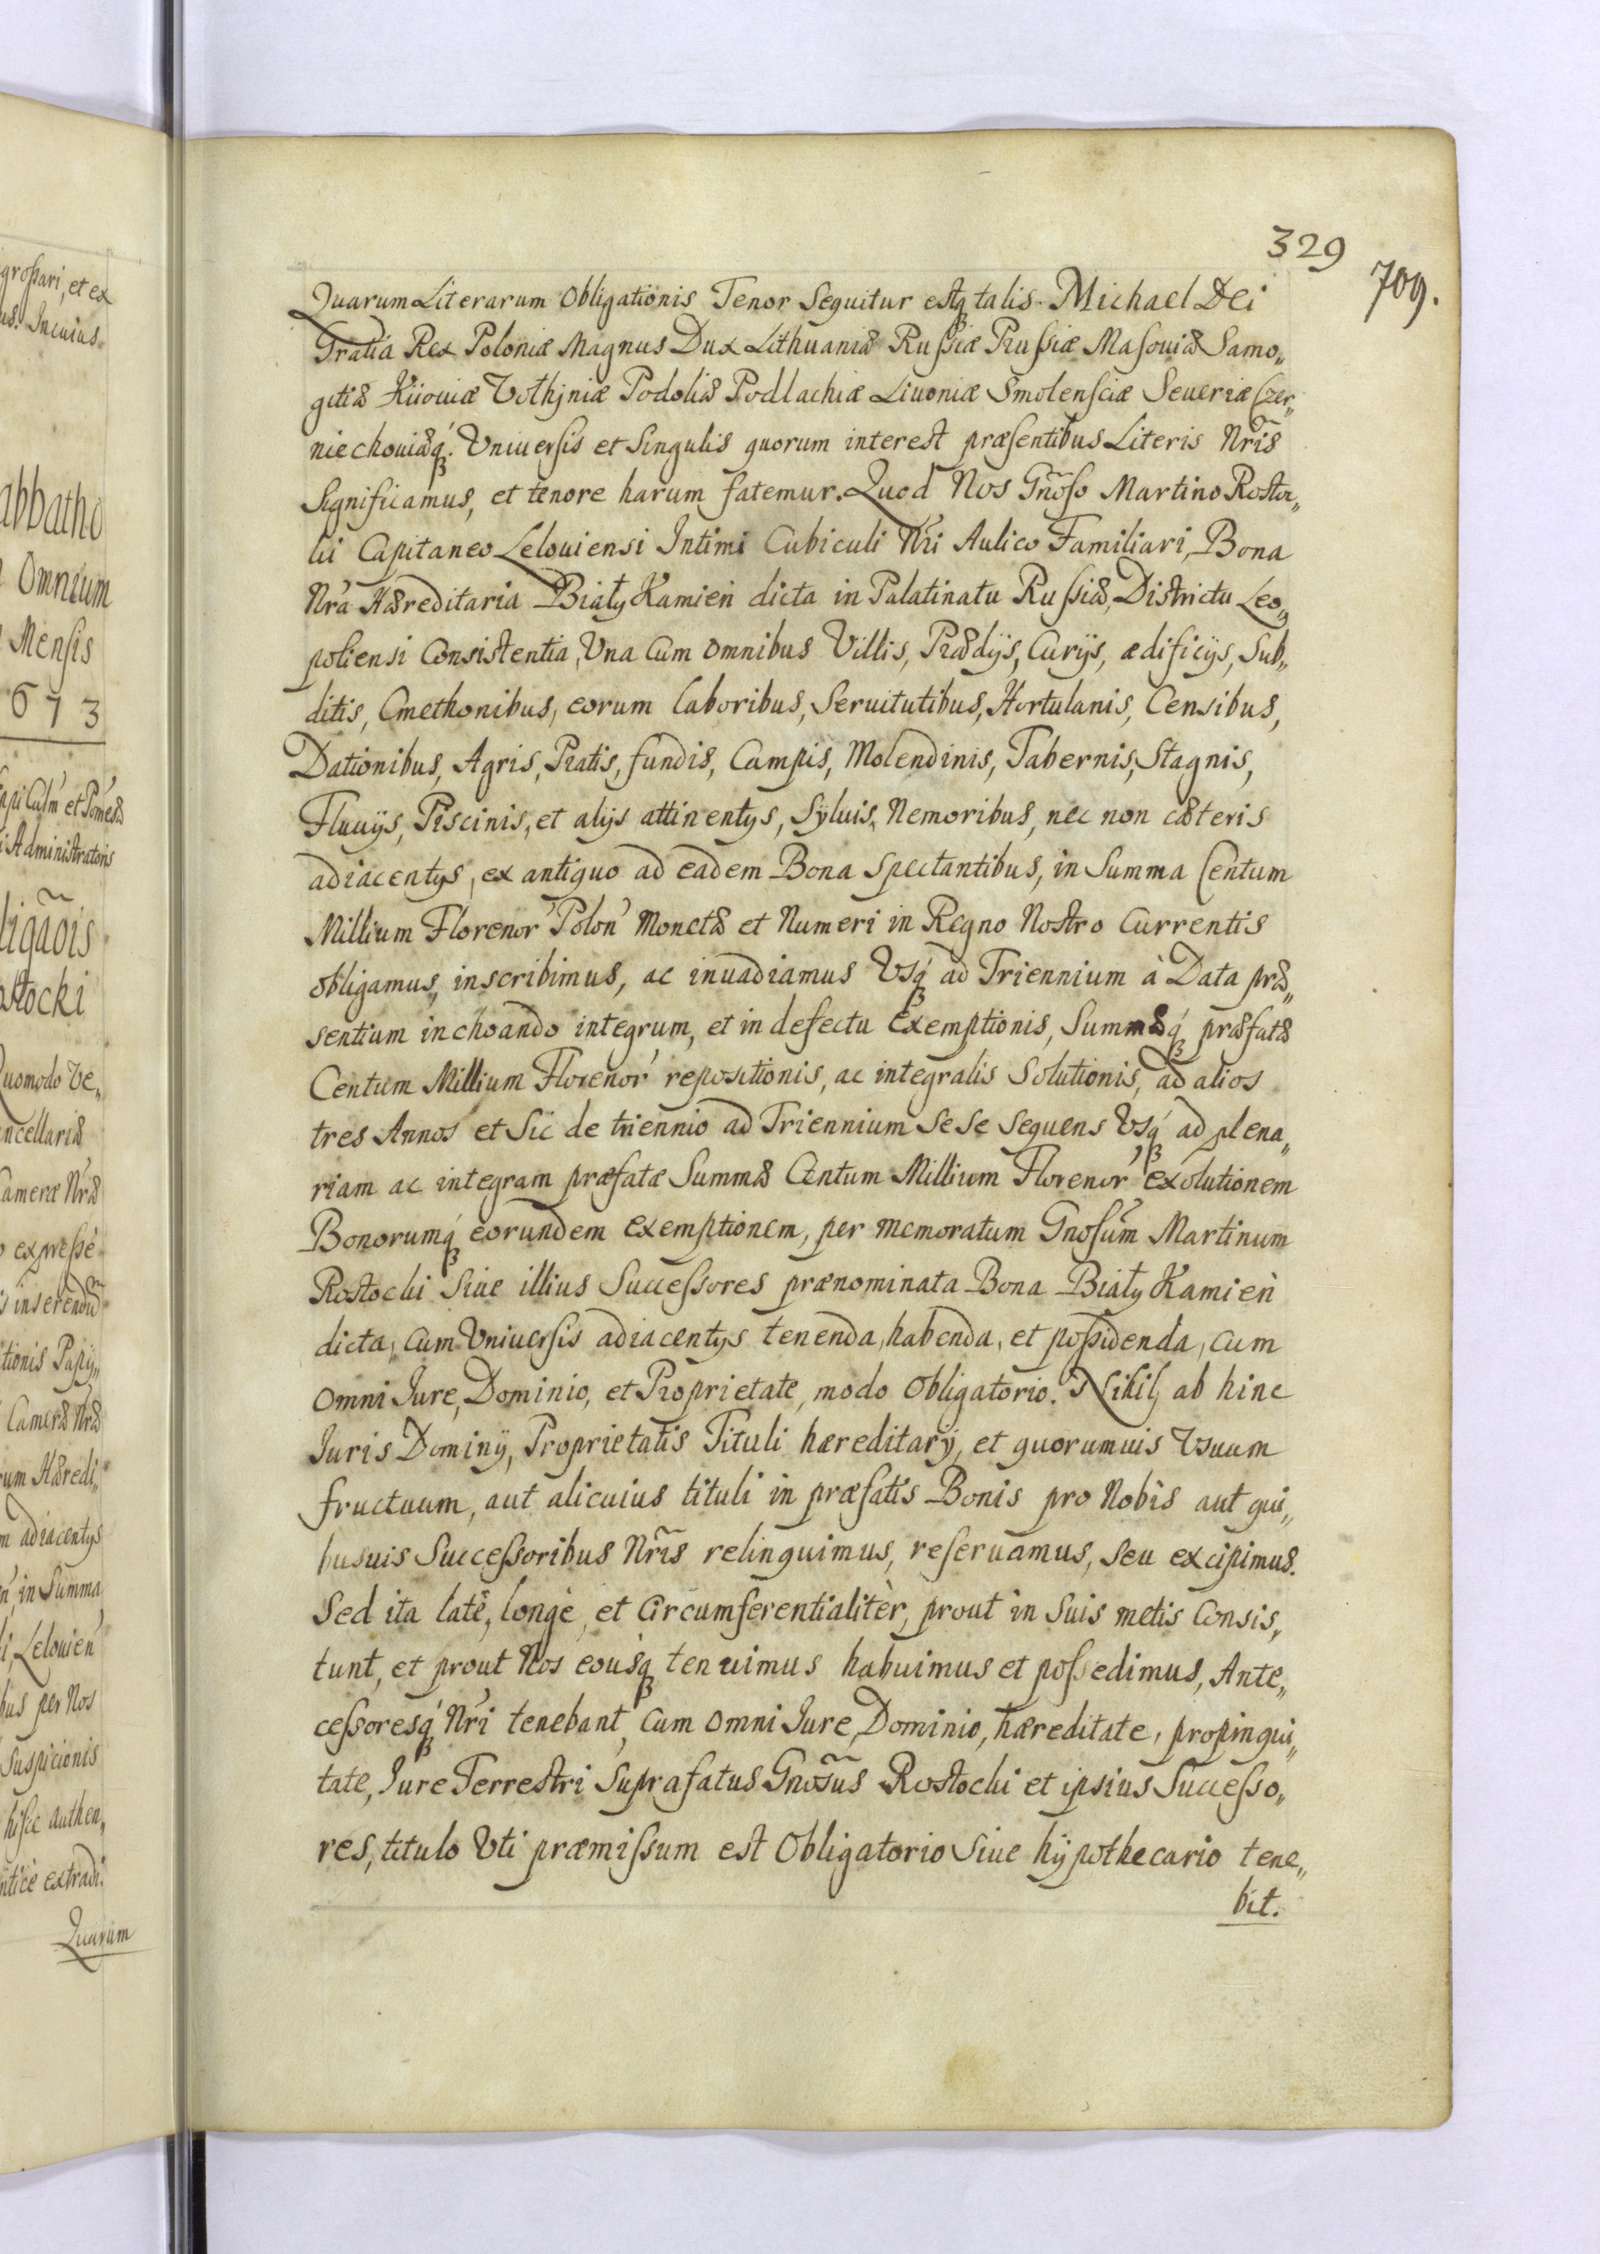 329
709.
Quarum Literarum Obligationis Tenor Sequitur estq́ talis. Michael Dei
Gratia Rex Poloniæ Magnus Dux Lithuaniæ Russiæ Prussiæ Masouiæ Samo„
gitiæ Kijouiæ Volhjniæ Podoliæ Podlachiæ Liuoniæ Smolensciæ Seueriæ Czer„
niechouiæq́. Vniuersis et Singulis quorum interest præsentibus Literis Nr̃is
Significamus, et tenore harum fatemur. Quod Nos Gñoso Martino Rosto„
cki Capitaneo Lelouiensi Intimi Cubiculi Nr̃i Aulico Familiari, Bona
Nr̃a Hæreditaria Biały Kamień dicta in Palatinatu Russiæ, Districtu Leo„
poliensi Consistentia, Vna Cum omnibus Villis, Prædijs, Curijs, ædificijs, Sub„
ditis, Cmethonibus, eorum laboribus, Seruitutibus, Hortulanis, Censibus,
Dationibus, Agris, Pratis, fundis, Campis, Molendinis, Tabernis, Stagnis,
Fluuijs, Piscinis, et alijs attinentijs, Syluis, Nemoribus, nec non cæteris
adiacentijs, ex antiquo ad eadem Bona Spectantibus, in Summa Centum
Millium Florenor' Polon' Monetæ et Numeri in Regno Nostro Currentis
obligamus, inscribimus, ac inuadiamus Vsq́ ad Triennium à Data præ„
sentium inchoando integrum, et in defectu Exemptionis, Summæq́ præfatæ
Centum Millium Florenor' repositionis, ac integralis Solutionis, ad alios
tres Annos et Sic de triennio ad Triennium Se Se Sequens Vsq́ ad plena„
riam ac integram præfatæ Summæ Centum Millium Florenor' exolutionem
Bonorumq́ eorundem exemptionem, per memoratum Gnosum̃ Martinum
Rostocki Siue illius Successores prænominata Bona Biały Kamień
dicta, cum Vniuersis adiacentijs tenenda, habenda, et possidenda, cum
omni Jure, Dominio, et Proprietate, modo Obligatorio. Nihil ab hinc
Juris Dominij, Proprietatis Tituli hæreditarij, et quorumuis Vsuum
fructuum, aut alicuius tituli in præfatis Bonis pro Nobis aut qui„
busuis Successoribus Nr̃is relinquimus, reseruamus, seu excipimus.
Sed ita latè, longè, et Circumferentialitèr, prout in Suis metis Consis„
tunt, et prout Nos eousq́ tenuimus habuimus et possedimus, Ante„
cessoresq́ Nr̃i tenebant, cum omni Jure, Dominio, hæreditate, propinqui„
tate, Jure Terrestri Suprafatus Gnos̃us Rostocki et ipsius Successo„
res, titulo Vti præmissum est Obligatorio Siue hijpothecario tene„
bit.